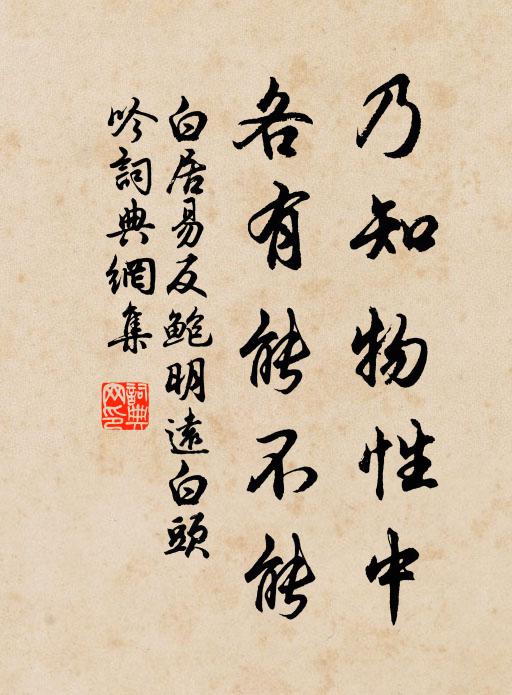 乃知物性中
各有能不能
白居易反鮑明遠白頭
吟詞典網集
詞典
网印